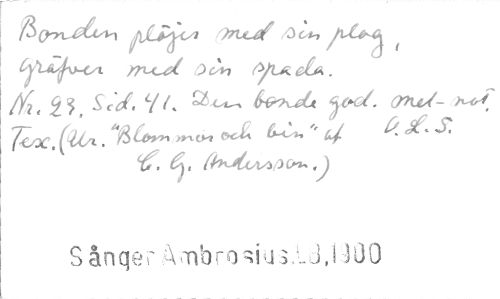 Bonden plöjer med sin plog,
gräfver med sin spada.
Nr. 23, Sid. 41. Den bonde god. met-not,
Tex. (Ur. "Blommor och bin" af O. L. S.
C. G. Andersson.)
Sånger Ambrosius L8,1900